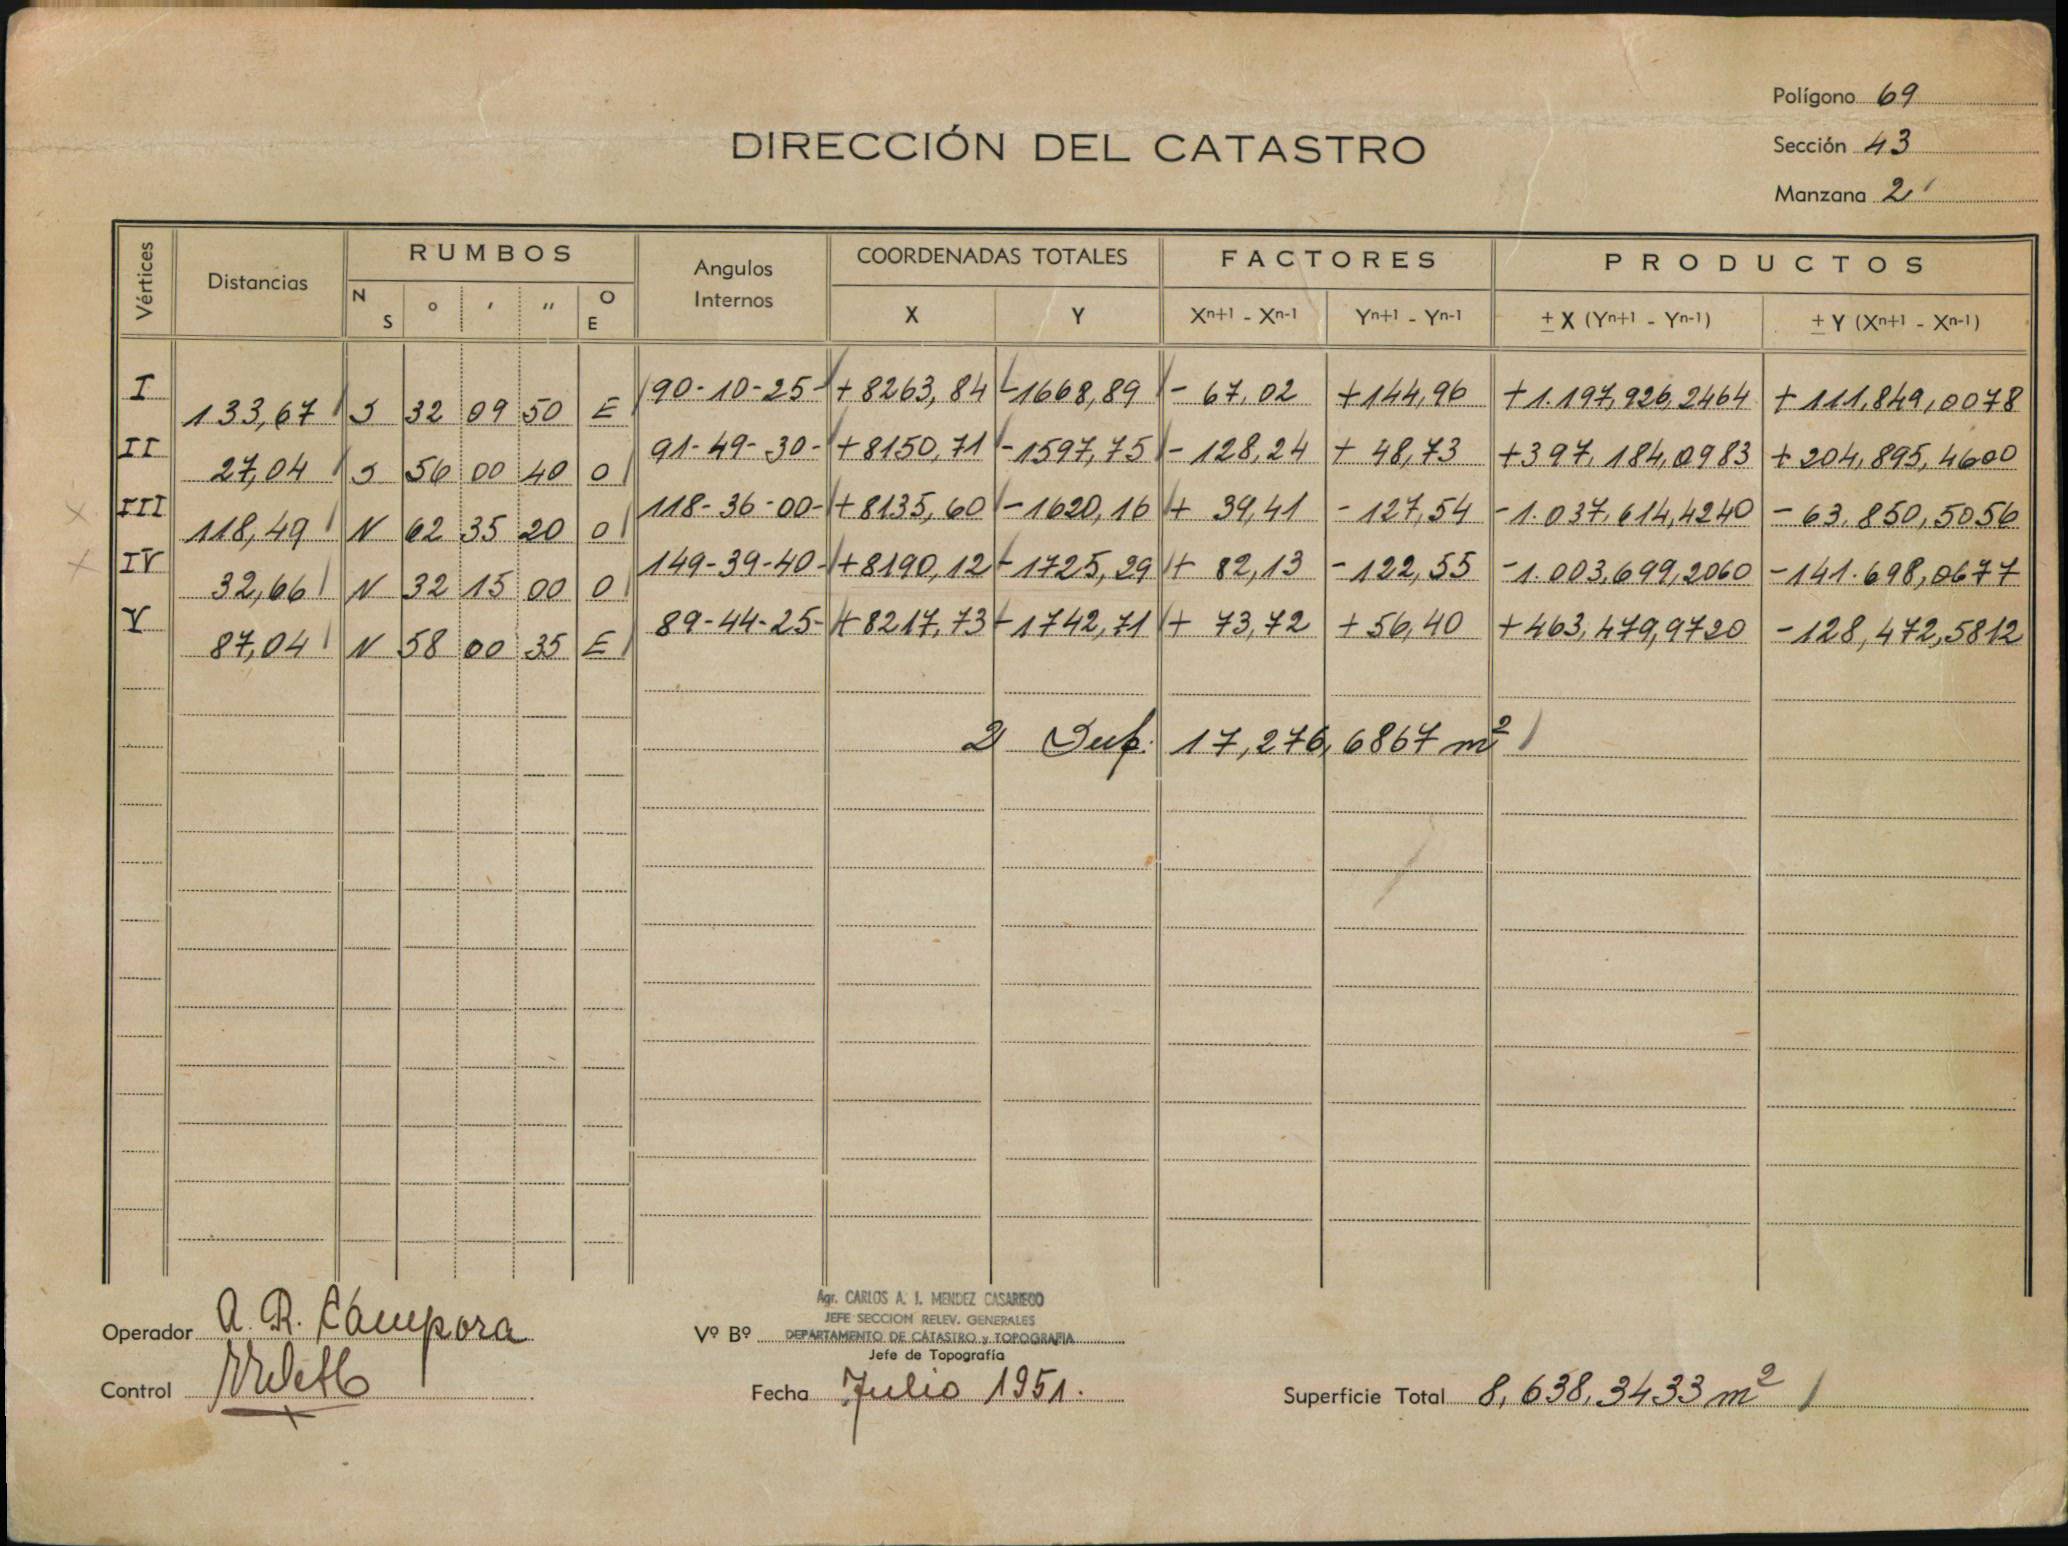 Polígono 69
DIRECCIÓN DEL CATASTRO
Sección 43
Manzana 2
Vértices Distancias RUMBOS Angulos Internos COORDENADAS TOTALES FACTORES PRODUCTOS
N S ° ' " O E X Y Xn+1 - Xn-1 Yn+1 - Yn-1 ± X (Yn+1 - Yn-1) ± Y (Xn+1 - Xn-1)
I 90-10-25- +8263,84 -1668,89 - 67,02 +144,96 +1.197,926,2464 +111,849,0078
133,67 S 32 09 50 E
II 91-49-30- +8150,71 -1597,75 - 128,24 + 48,73 +397,184,0983 +204,895,4600
27,04 S 56 00 40 O
III 118-36-00- +8135,60 -1620,16 + 39,41 -127,54 -1.037,614,4240 -63.850,5056
118,49 N 62 35 20 O
IV 149-39-40- +8190,12 -1725,29 + 82,13 -122,55 -1.003,699,2060 -141.698,0677
32,66 N 32 15 00 O
V 89-44-25- +8217,73 -1742,71 + 73,72 +56,40 +463,479,9720 -128,472,5812
87,04 N 58 00 35 E
2 Sup. 17,276,6867 m²
Agr. CARLOS A. I. MENDEZ CASARIEGO
JEFE SECCION RELEV. GENERALES
Operador A. R. Cámpora Vº Bº DEPARTAMENTO DE CATASTRO y TOPOGRAFIA
Jefe de Topografía
Control Fecha Julio 1951. Superficie Total 8,638,3433 m²